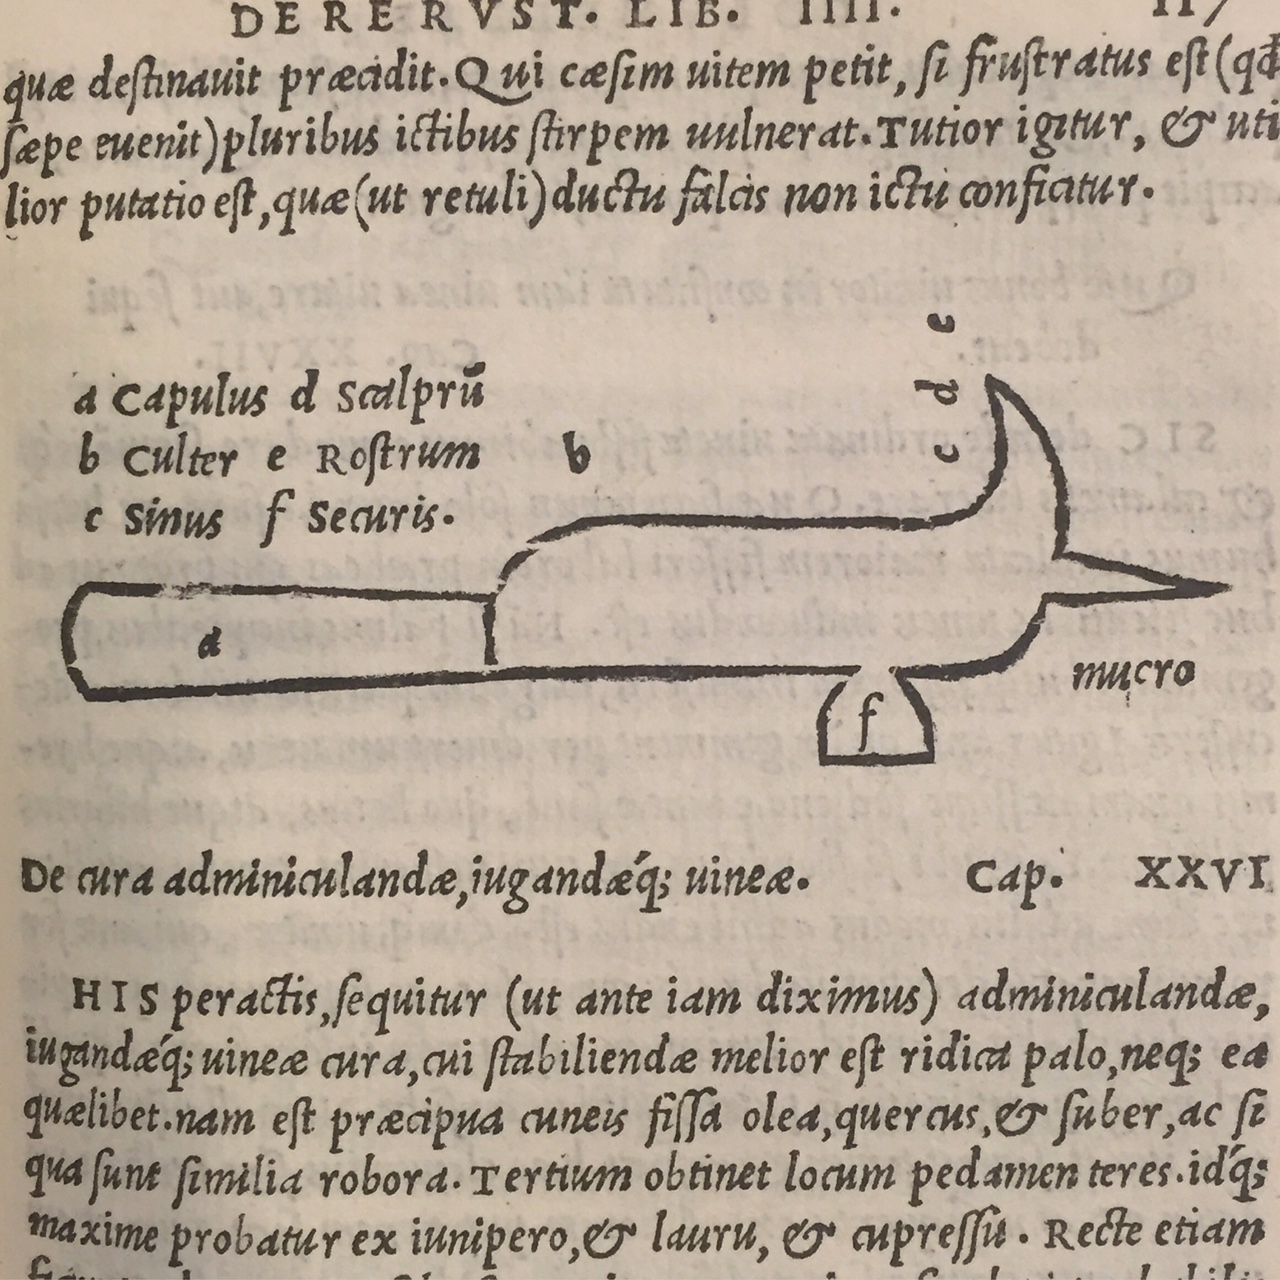 DE RE RVST. LIB. IIII.
quæ destinauit præcidit. Qui cæsim uitem petit, si frustratus est (qđ
sæpe euenit) pluribus ictibus stirpem uulnerat. Tutior igitur, & uti
lior putatio est, quæ (ut retuli) ductu falcis non ictu conficitur.
a Capulus d Scalprū
b Culter e Rostrum
c Sinus f Securis.
e
d
c
b
a
mucro
f
De cura adminiculandæ, iugandæq́; uineæ. Cap. XXVI
HIS peractis, sequitur (ut ante iam diximus) adminiculandæ,
iugandæq́; uineæ cura, cui stabiliendæ melior est ridica palo, neq; ea
quælibet. nam est præcipua cuneis fissa olea, quercus, & suber, ac si
qua sunt similia robora. Tertium obtinet locum pedamen teres. idq́;
maxime probatur ex iunipero, & lauru, & cupressu. Recte etiam